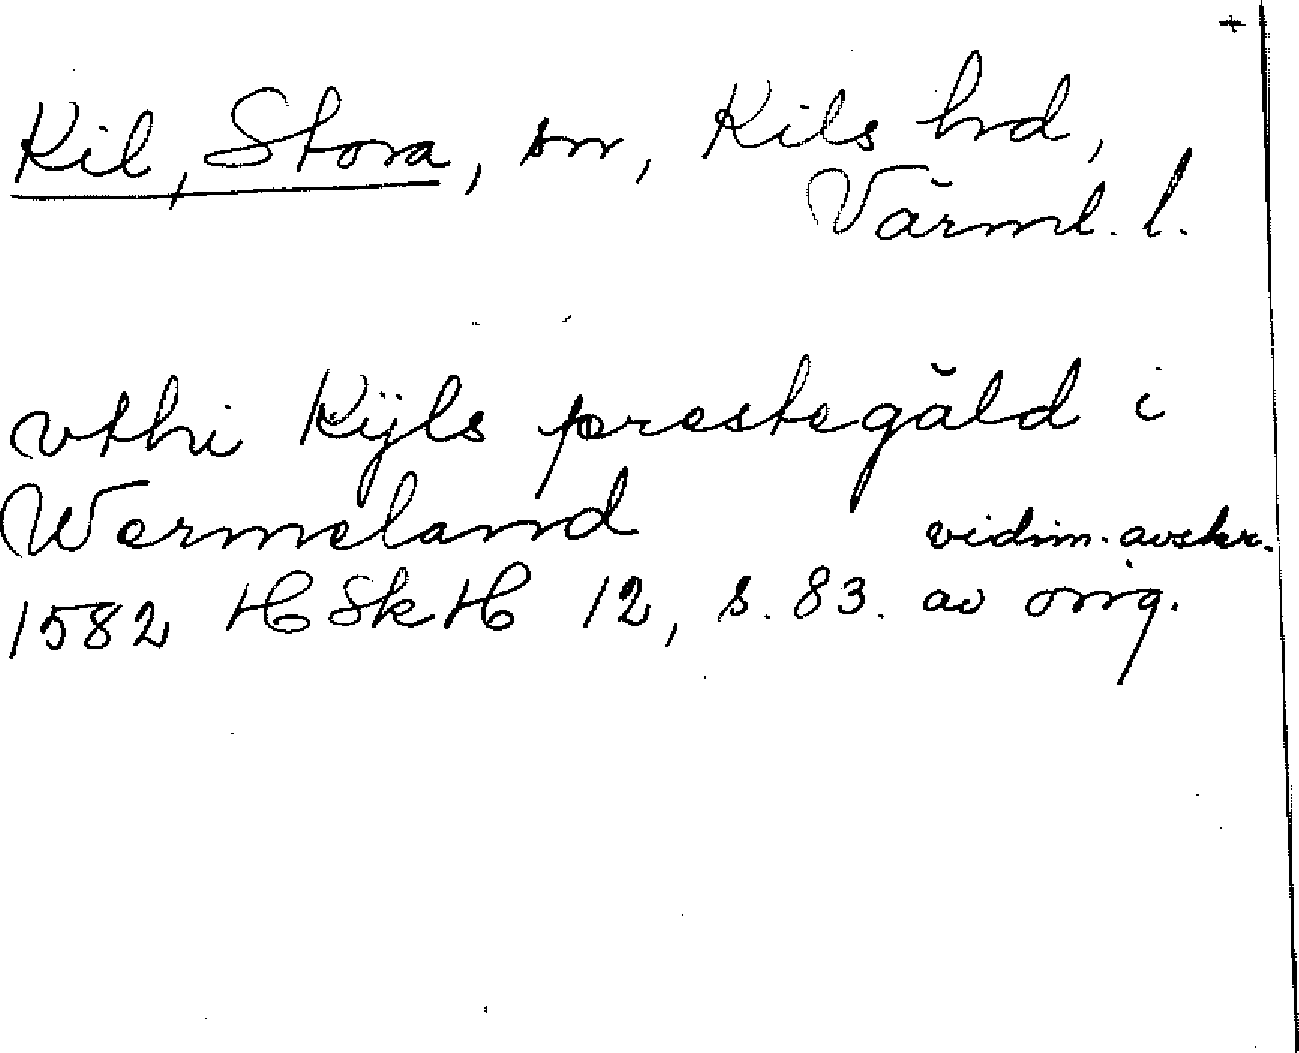 +
Kil, Stora, sn, Kils hd,
Värml. l.
vthi Kÿls prestegäld i
Wermeland vidim. avskr.
1582 HSkH 12, s. 83. av orig.